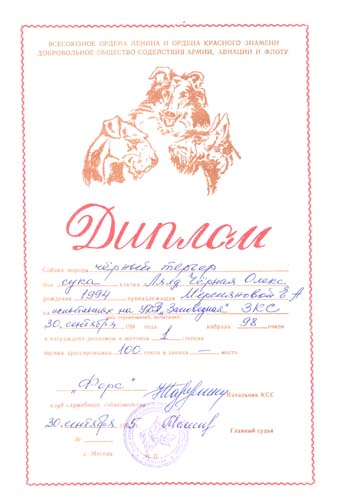 ВСЕСОЮЗНОЕ ОРДЕНА ЛЕНИНА И ОРДЕНА КРАСНОГО ЗНАМЕНИ
ДОБРОВОЛЬНОЕ ОБЩЕСТВО СОДЕЙСТВИЯ АРМИИ, АВИАЦИИ И ФЛОТУ
Диплом
Собака породы чёрный терьер
пол сука кличка Лялд Чёрная Олекс
рождения 1994 принадлежащая Е А
испытаниях на "Заповедная" ЗКС
30 сентября 199 года набрала 98 очков
и награждена дипломом и жетоном 1 степени
оценка дрессировки 100 очков и заняла — место
„Форс"
Начальник КСС
клуб служебного собаководства
30 сентября 5
Главный судья
№
г. Москва